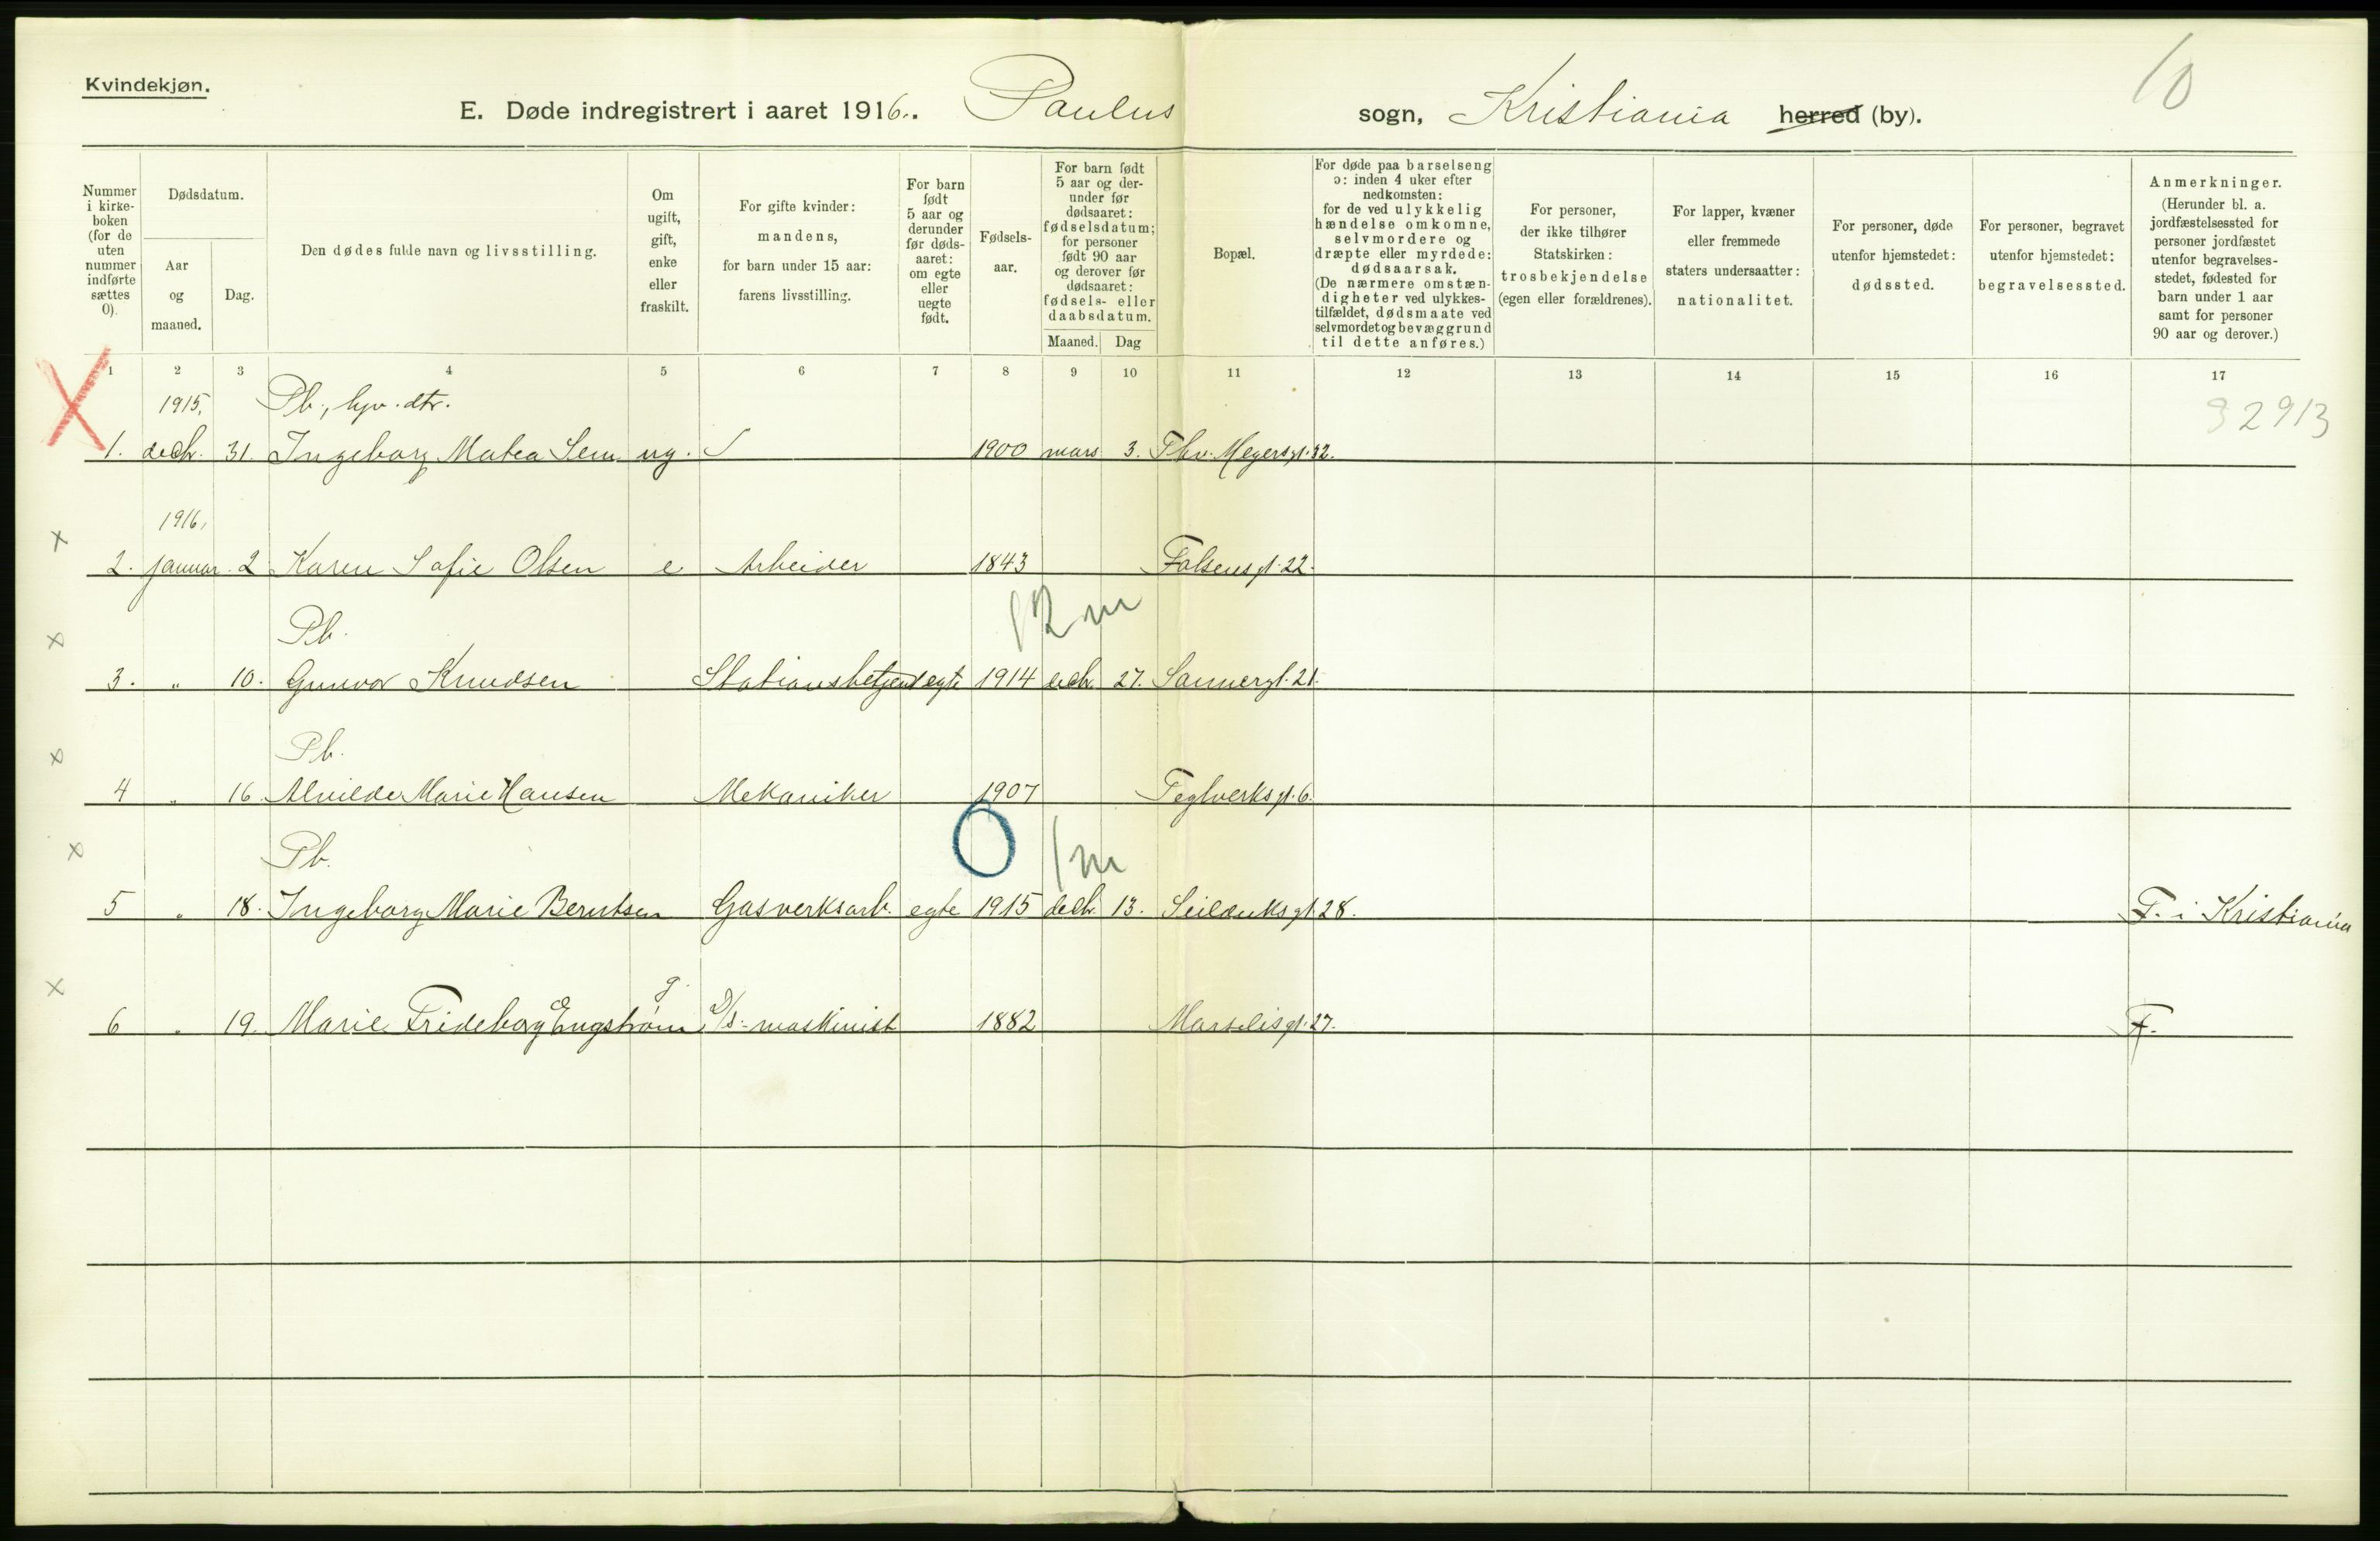 Kvindekjøn.
10
E. Døde indregistrert i aaret 1916. Paulus sogn, Kristiania herred (by).
Nummer i kirke-boken (for de uten nummer indførte sættes 0).
Dødsdatum.
Aar og maaned.
Dag.
Den dødes fulde navn og livsstilling.
Om ugift, gift, enke eller fraskilt.
For gifte kvinder: mandens, for barn under 15 aar: farens livsstilling.
For barn født 5 aar og derunder før døds-aaret: om egte eller uegte født.
Fødsels-aar.
For barn født 5 aar og der-under før dødsaaret: fødselsdatum; for personer født 90 aar og derover før dødsaaret: fødsels- eller daabsdatum.
Maaned. Dag
Bopæl.
For døde paa barselseng ɔ: inden 4 uker efter nedkomsten: for de ved ulykkelig hændelse omkomne, selvmordere og dræpte eller myrdede: dødsaarsak. (De nærmere omstæn-digheter ved ulykkes-tilfældet, dødsmaate ved selvmordet og bevæggrund til dette anføres.)
For personer, der ikke tilhører Statskirken: trosbekjendelse (egen eller forældrenes).
For lapper, kvæner eller fremmede staters undersaatter: nationalitet.
For personer, døde utenfor hjemstedet: dødssted.
For personer, begravet utenfor hjemstedet: begravelsessted.
Anmerkninger. (Herunder bl. a. jordfæstelsessted for personer jordfæstet utenfor begravelses-stedet, fødested for barn under 1 aar samt for personer 90 aar og derover.)
1 2 3 4 5 6 7 8 9 10 11 12 13 14 15 16 17
1915, Pb., hjv. dtr. 32913
1. decbr. 31. Ingeborg Matea Sem ug. 1900 mars 3. Thv. Meyersgt. 32.
1916,
2. januar 2 Karen Sofie Olsen e. Arbeider 1843 Falsensgt. 22.
Pb. 12 m
3. " 10. Gunvor Knudsen Stationsbetjent egte 1914 decbr. 27. Sannergt. 21.
Pb.
4 " 16. Alvilde Marie Hansen Mekaniker 1907 Teglverksgt. 6.
Pb. 0 1 m
5 " 18. Ingeborg Marie Berntsen Gasverksarb. egte 1915 decbr. 13. Seilduksgt. 28. F. i Kristiania
6 " 19. Marie Frideborg Engstrøm g. D/s.-maskinist 1882 Marselisgt. 27. F.